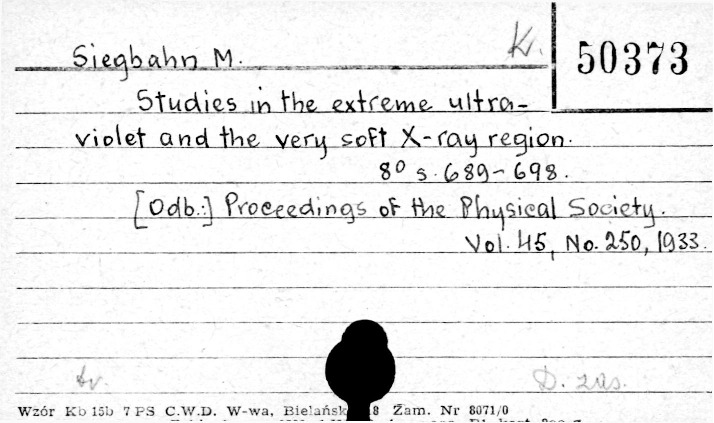 Siegbahn M. Kr. 50373
Studies in the extreme ultra-
violet and the very soft X-ray region.
8° s. 689-698.
[Odb.:] Proceedings of the Physical Society.
Vol. 45, No. 250, 1933.
tr. D. zas.
Wzór Kb 15b 7 PS C.W.D. W-wa, Zam. Nr 8071/0